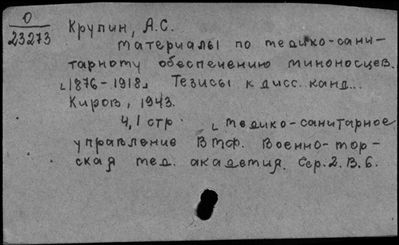 О
23273
Крупин, А.С.
Материалы по медико-сани-
тарному обеспечению миноносцев.
˻1876-1918˼ Тезисы к дисс. канд...
Киров, 1943.
4,1 стр. ˻Медико-санитарное
управление ВМФ. Военно-мор-
ская мед. академия. Сер. 2. В. 6.